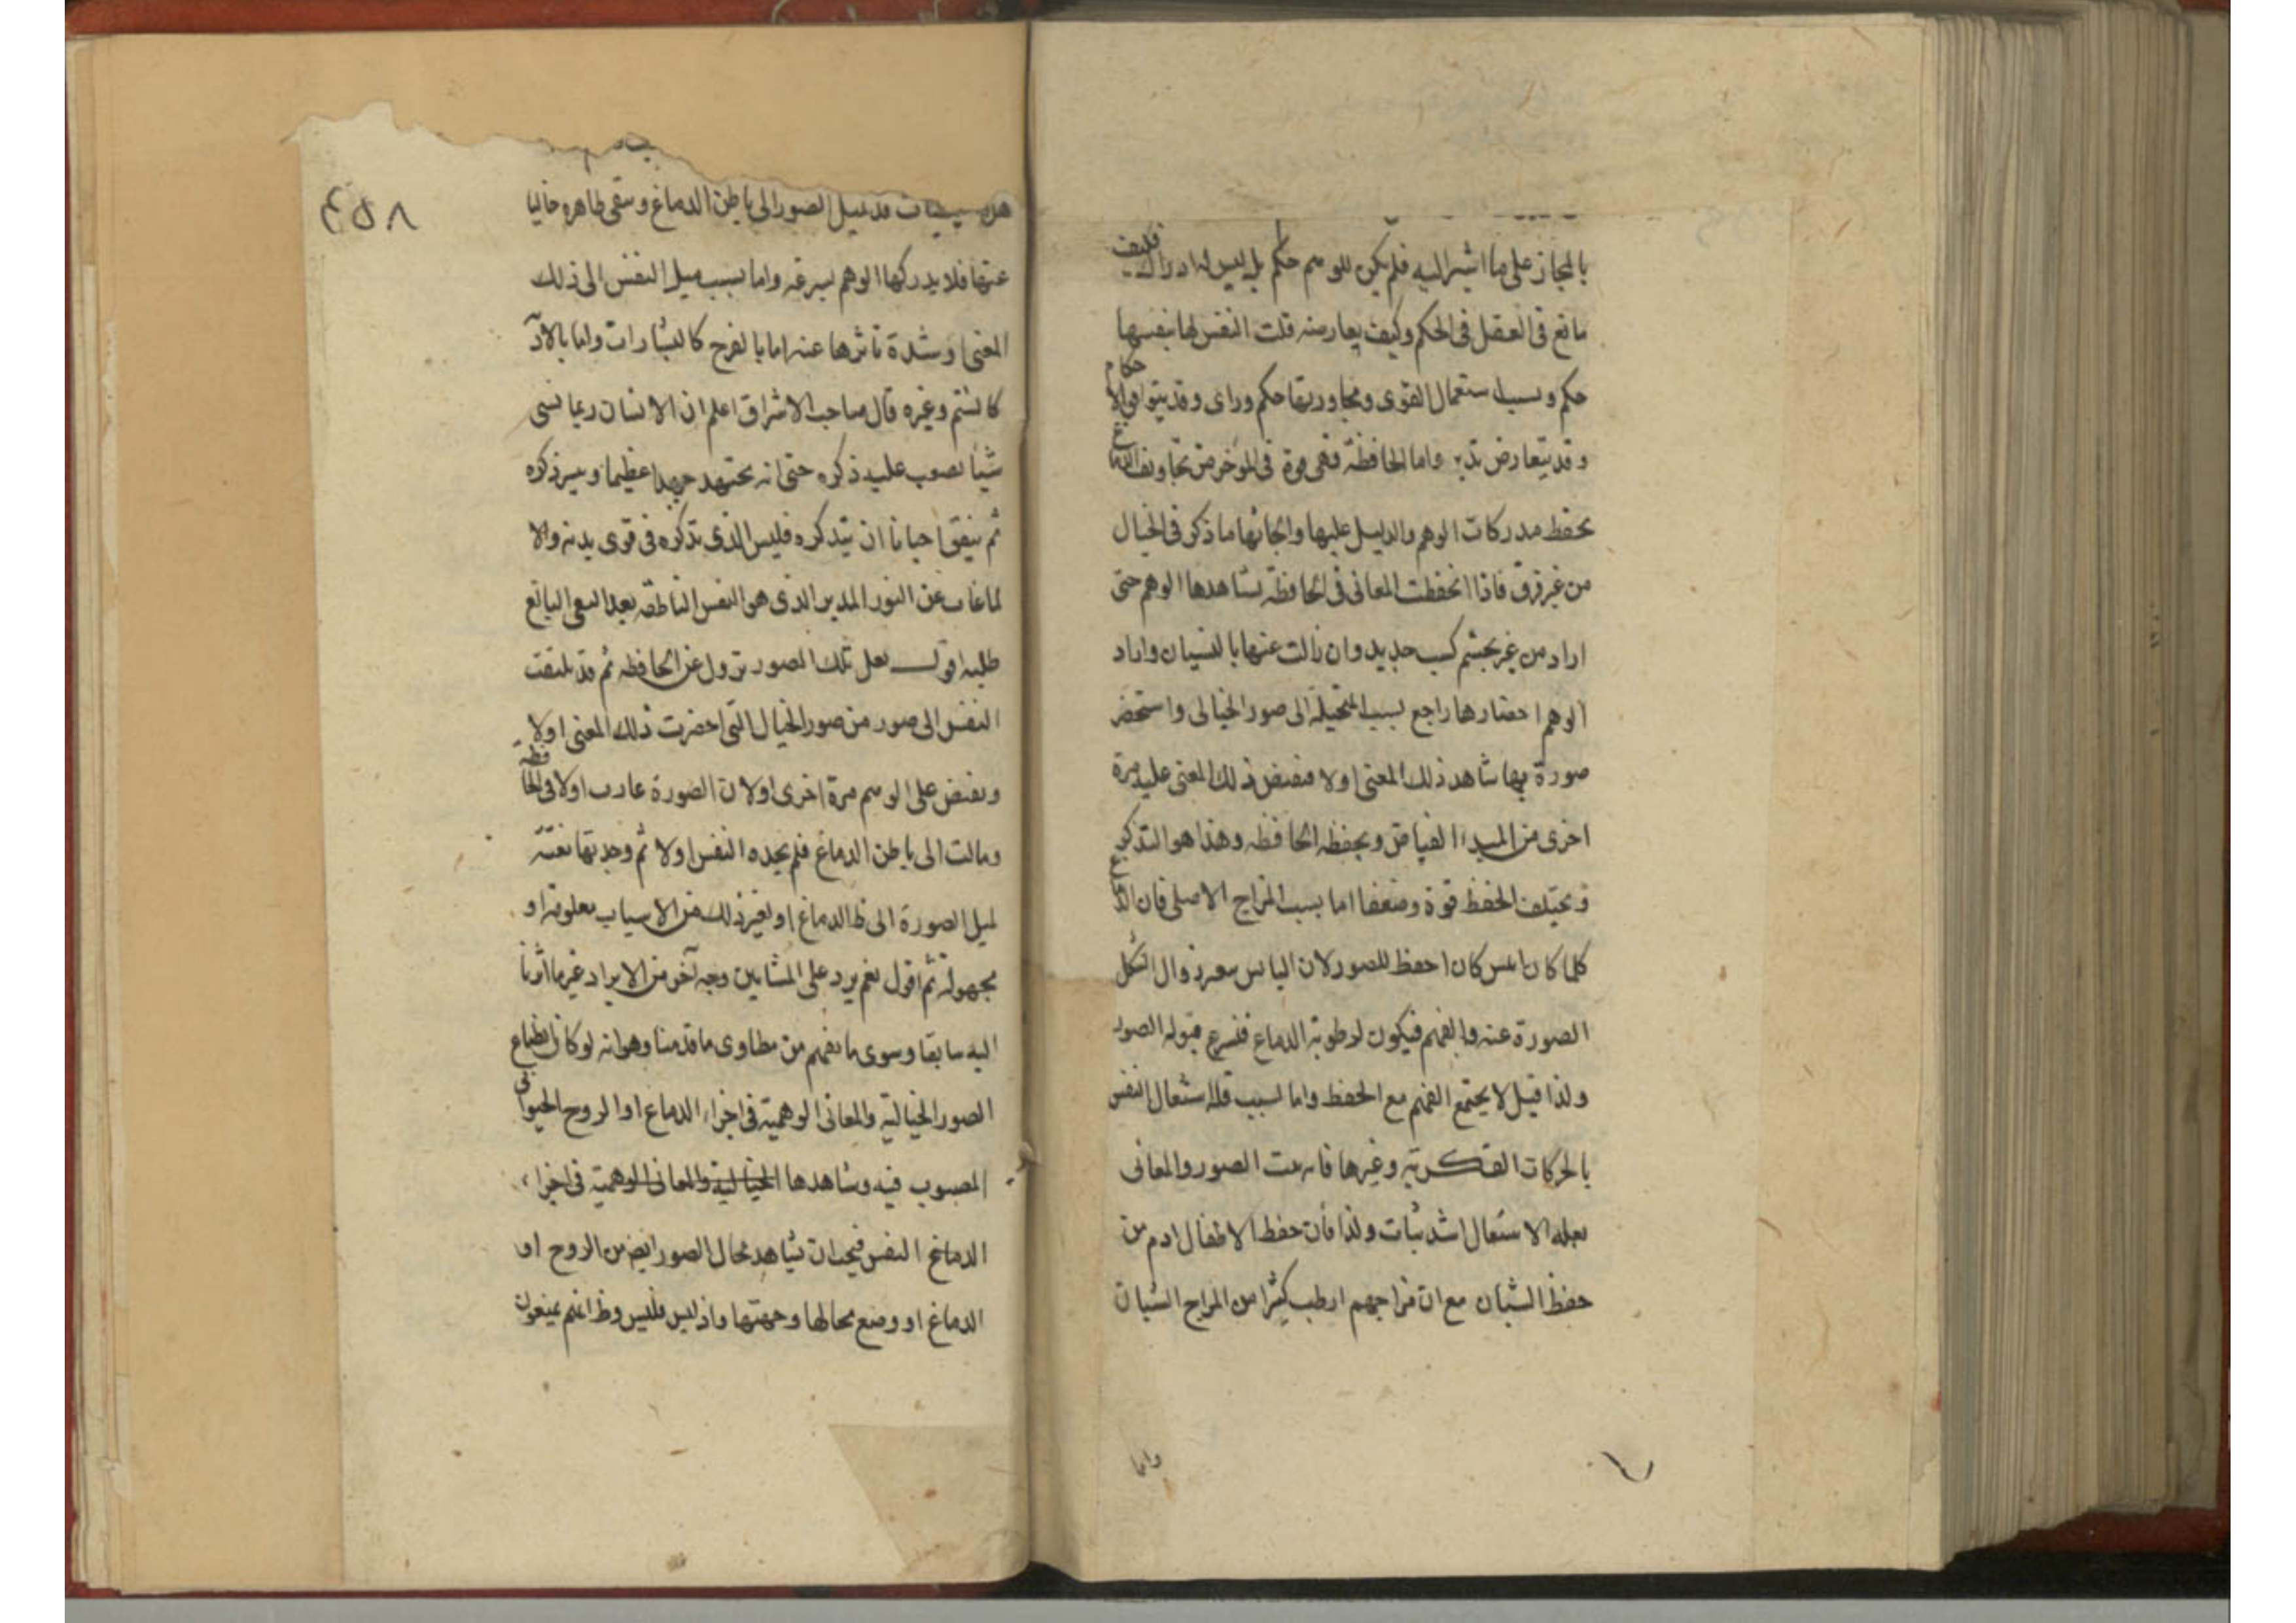 بالمجاز على ما اشير اليه فلم يكن للوهم حكم بل ليس له ادراك فكيف
مانع فى العقل فى الحكم وكيف يعارضه قلت النفس لها بنفسها
حكم وبسبب استعمال القوى ومجاورتها حكم وراى وقد يتوافق الاحكام
وقد يتعارض تدبر واما الحافظة فهى قوة فى الموخر من تجاويف الدماغ
يحفظ مدركات الوهم والدليل عليها وابحاثها ما ذكر فى الخيال
من غير فرق فاذا انحفظت المعانى فى الحافظة يشاهدها الوهم حتى
اراد من غير تجشم كسب جديد وان زالت عنها بالنسيان واراد
الوهم احضارها راجع بسبب المتخيلة الى صور الخيالى واستحضر
صورة بها شاهد ذلك المعنى اولا فيفيض ذلك المعنى عليه مرة
اخرى من المبدء الفياض ويحفظه الحافظة وهذا هو التذكر
ويختلف الحفظ قوة وضعفا اما بسبب المزاج الاصلى فان الدماغ
كلما كان ايبس كان احفظ للصور لان اليابس يعسر زوال الشكل
الصورة عنه والفهم فيكون لرطوبة الدماغ فيسرع قبوله الصور
ولذا قيل لا يجتمع الفهم مع الحفظ واما بسبب قلة اشتغال النفس
بالحركات الفكرية وغيرها فان الصور والمعانى
بقلة الاشتغال اشد ثبات ولذا فان حفظ الاطفال ادم من
حفظ الشبان مع ان مزاجهم ارطب كثيرا من المزاج الشبان
واما
٤٥٨
قد تميل الصور الى باطن الدماغ وتبقى ظاهره خاليا
عنها فلا يدركها الوهم بسرعة واما بسبب ميل النفس الى ذلك
المعنى وشدة تاثرها عنه اما بالفرح كالبشارات واما بالاذ
كالشتم وغيره قال صاحب الاشراق اعلم ان الانسان ربما نسى
شيئا يصعب عليه ذكره حتى انه يجتهد جهدا عظيما و ذكره
ثم يتفق احيانا ان يتذكره فليس الذى تذكره فى قوى بدنه والا
لما غاب عن النور المدبر الذى هو النفس الناطقة بعد السعى البالغ
طلبه اقول لعل تلك الصور تزول عن الحافظه ثم قد يلتفت
النفس الى صور من صور الخيال التى احضرت ذلك المعنى اولا
ويفيض على الوهم مرة اخرى اولان الصورة غارت اولا فى الحافظة
ومالت الى باطن الدماغ فلم يجده النفس اولا ثم وجدتها بغتة
لميل الصورة الى ظ الدماغ او لغير ذلك من الاسباب معلومة او
مجهولة ثم اقول نعم يرد على المشايين وجه آخر من الايراد غير ما اثرنا
اليه سابقا وسوى ما يفهم من مطاوى ما قدمنا وهو انه لو كان انطباع
الصور الخيالية والمعانى الوهمية فى اجزاء الدماغ او الروح الحيوانى
المصبوب فيه وشاهدها الخيالية والمعانى الوهمية فى اجزاء
الدماغ النفس فيجب ان يشاهد محال الصور ايض من الروح او
الدماغ او وضع محالها وجهتها واذ ليس فليس وظ انهم يمنعون